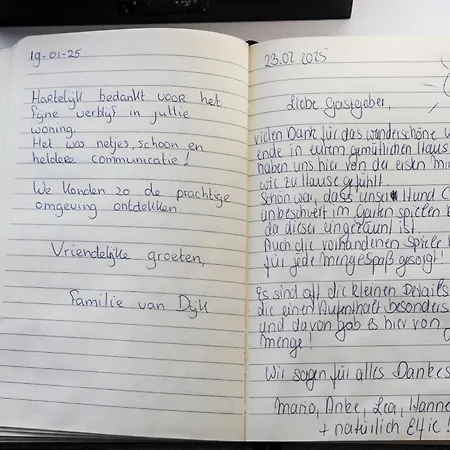 19-01-25
Hartelijk bedankt voor het
fijne verblijf in jullie
woning.
Het was netjes, schoon en
heldere communicatie!
We konden zo de prachtige
omgeving ontdekken
Vriendelijke groeten,
Familie van Dijk
23.02 2025
Liebe Gastgeber,
vielen Dank für das wunderschöne W
ende in eurem gemütlichen Haus
haben uns hier von der ersten Min
wie zu Hause gefühlt.
Schön war, dass unser Hund
unbeschwert im Garten spielen
da dieser umgezäunt ist.
Auch die vorhandenen Spiele
für jede Menge Spaß gesorgt!
Es sind oft die kleinen Details
die einen Aufenthalt besonders
und davon gab es hier von
Menge!
Wir sagen für alles Dankes
Mario, Anke, Lea, Hanne
+ natürlich Elfie!